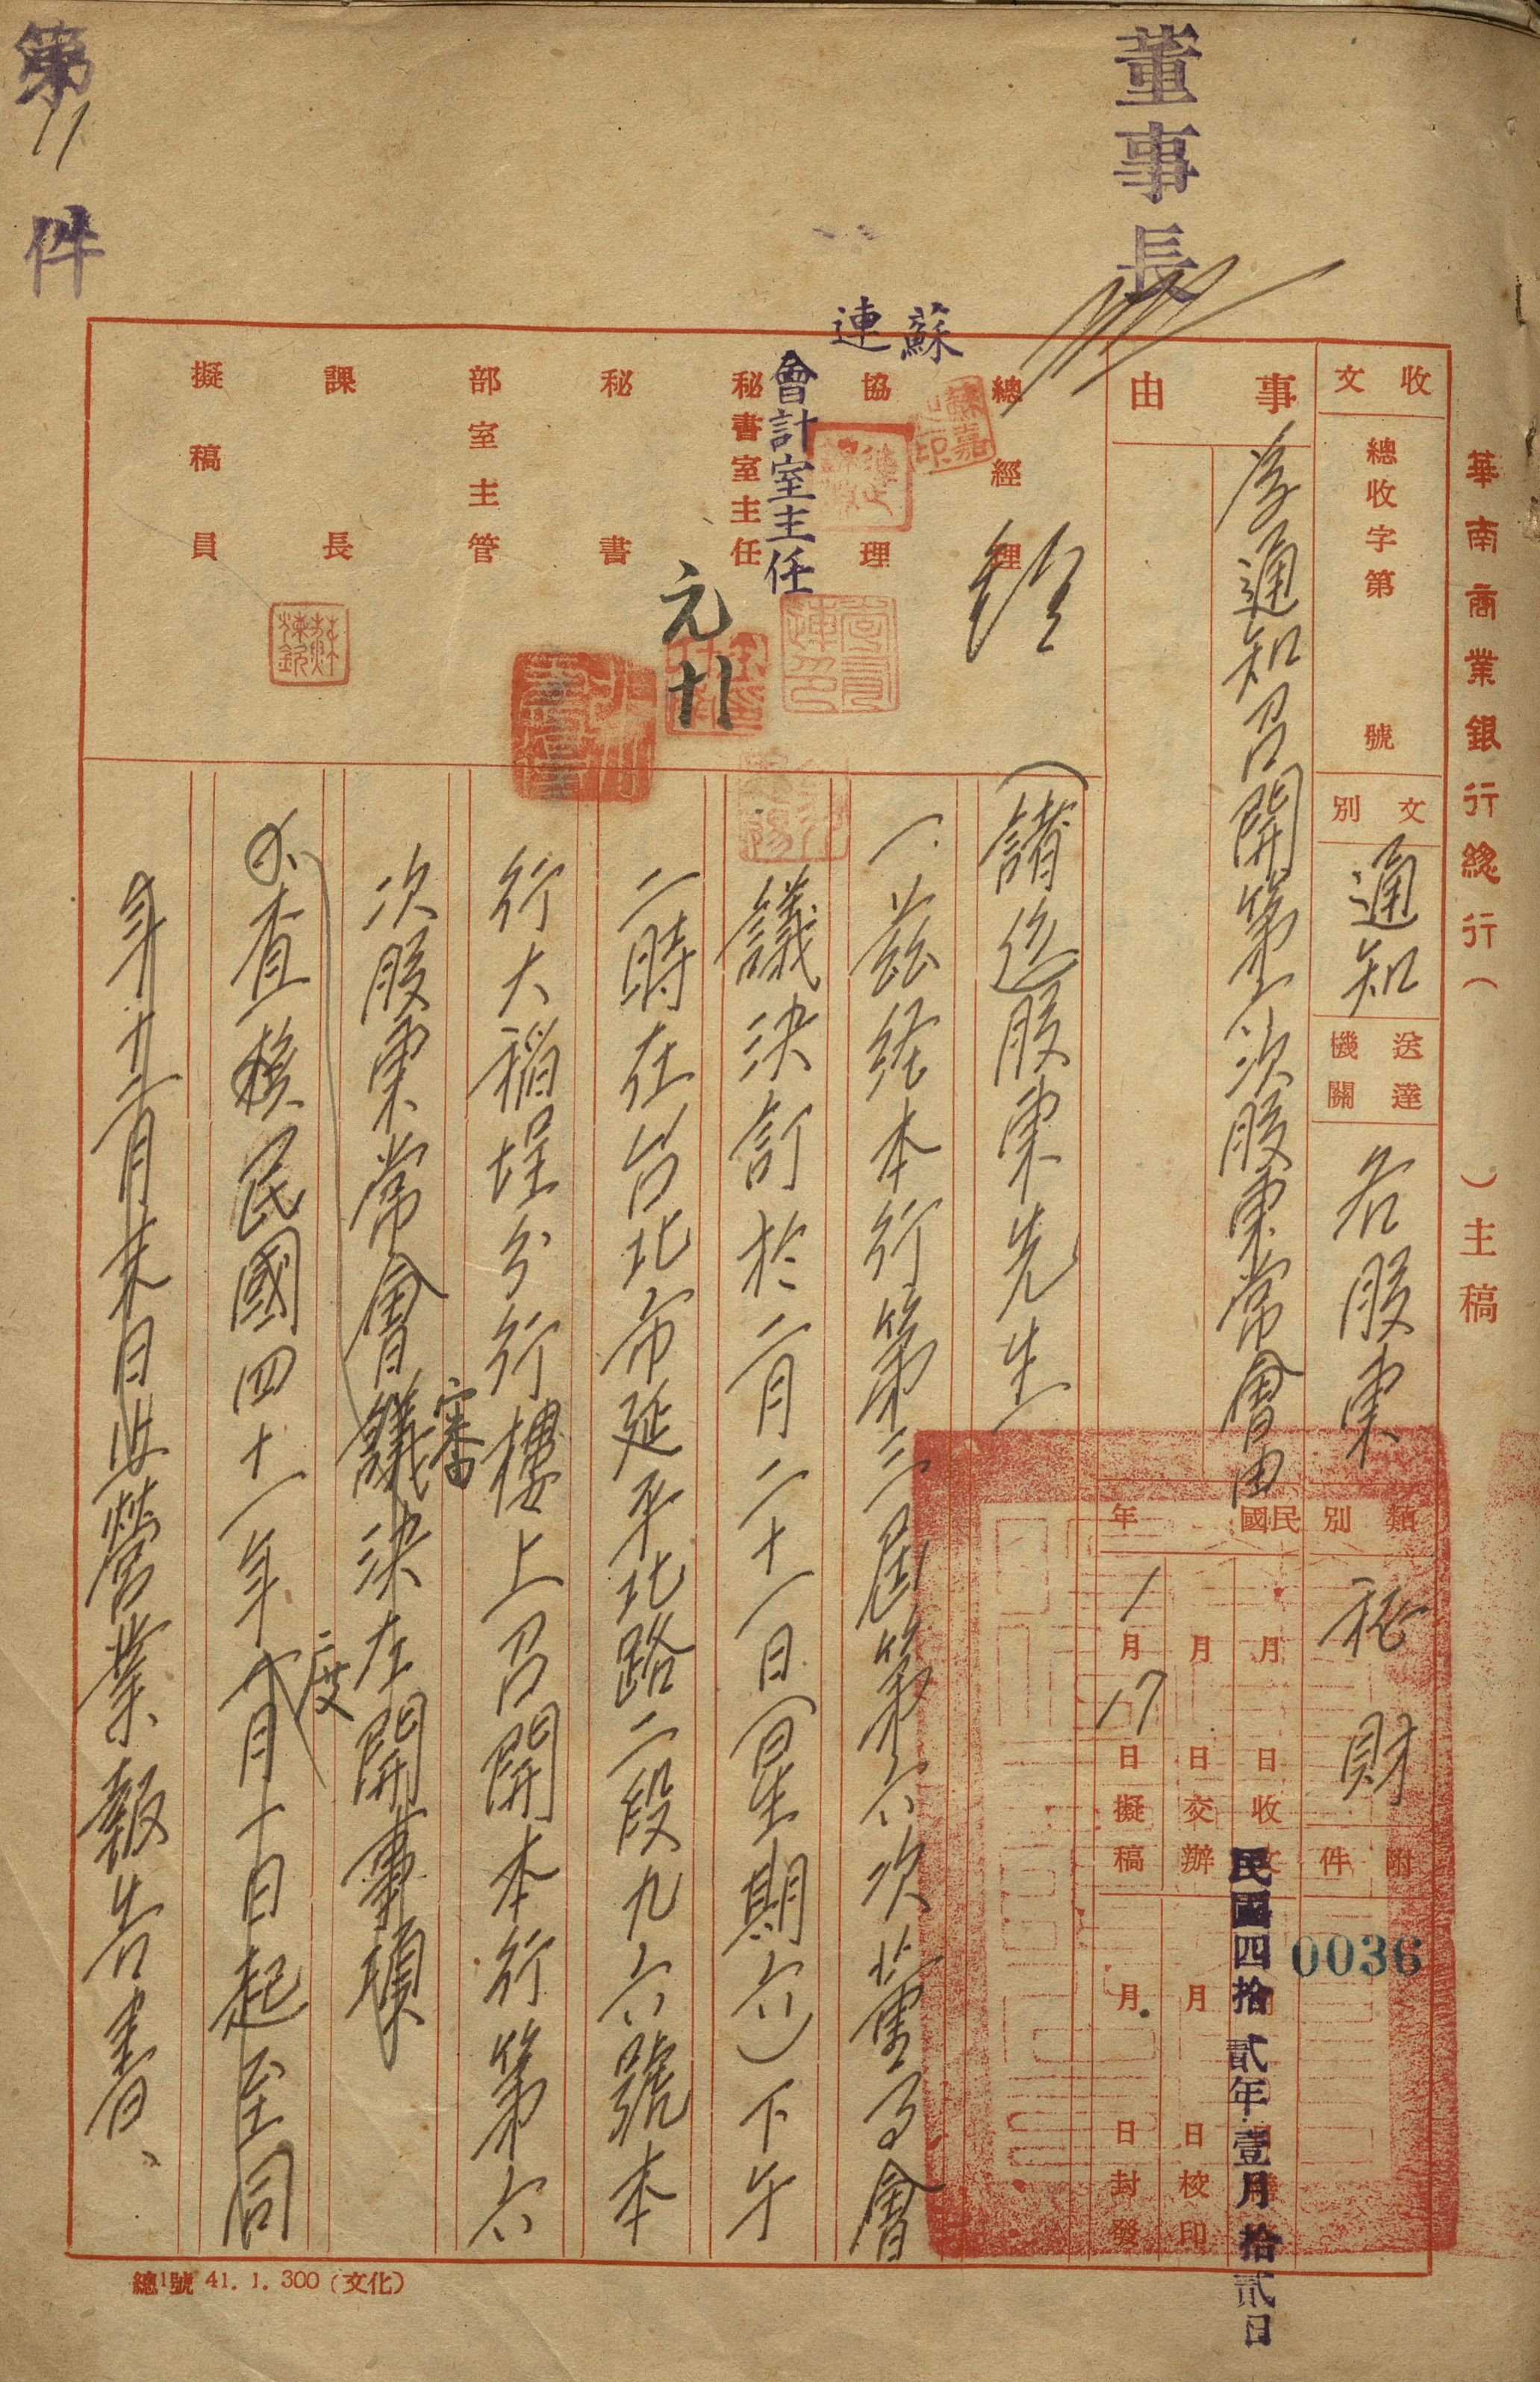 華南商業銀行總行（　　）主稿
收文
總收字第　號
文別
通知
送達機關
各股東
類別
秘
財
附件
0036
事由
為通知召開第六次股東常會由
民國　年
月　日收文
月　日交辦
1月17日擬稿
月　日校印
月　日封發
民國四拾貳年壹月拾貳日
董事長
第11件
蘇
連
總經理
協理
會計室主任
秘書室主任
秘書
部室主管
課長
擬稿員
（諸位）股東先生
一、茲經本行第三屆第六次董事會
議決訂於二月二十一日（星期六）下午
二時在台北市延平北路二段九六號本
行大稻埕分行樓上召開本行第六
次股東常會審議決左開事項
查核民國四十一年度
月十日起至同
年十二月末日止營業報告書、
總1號 41. 1. 300（文化）